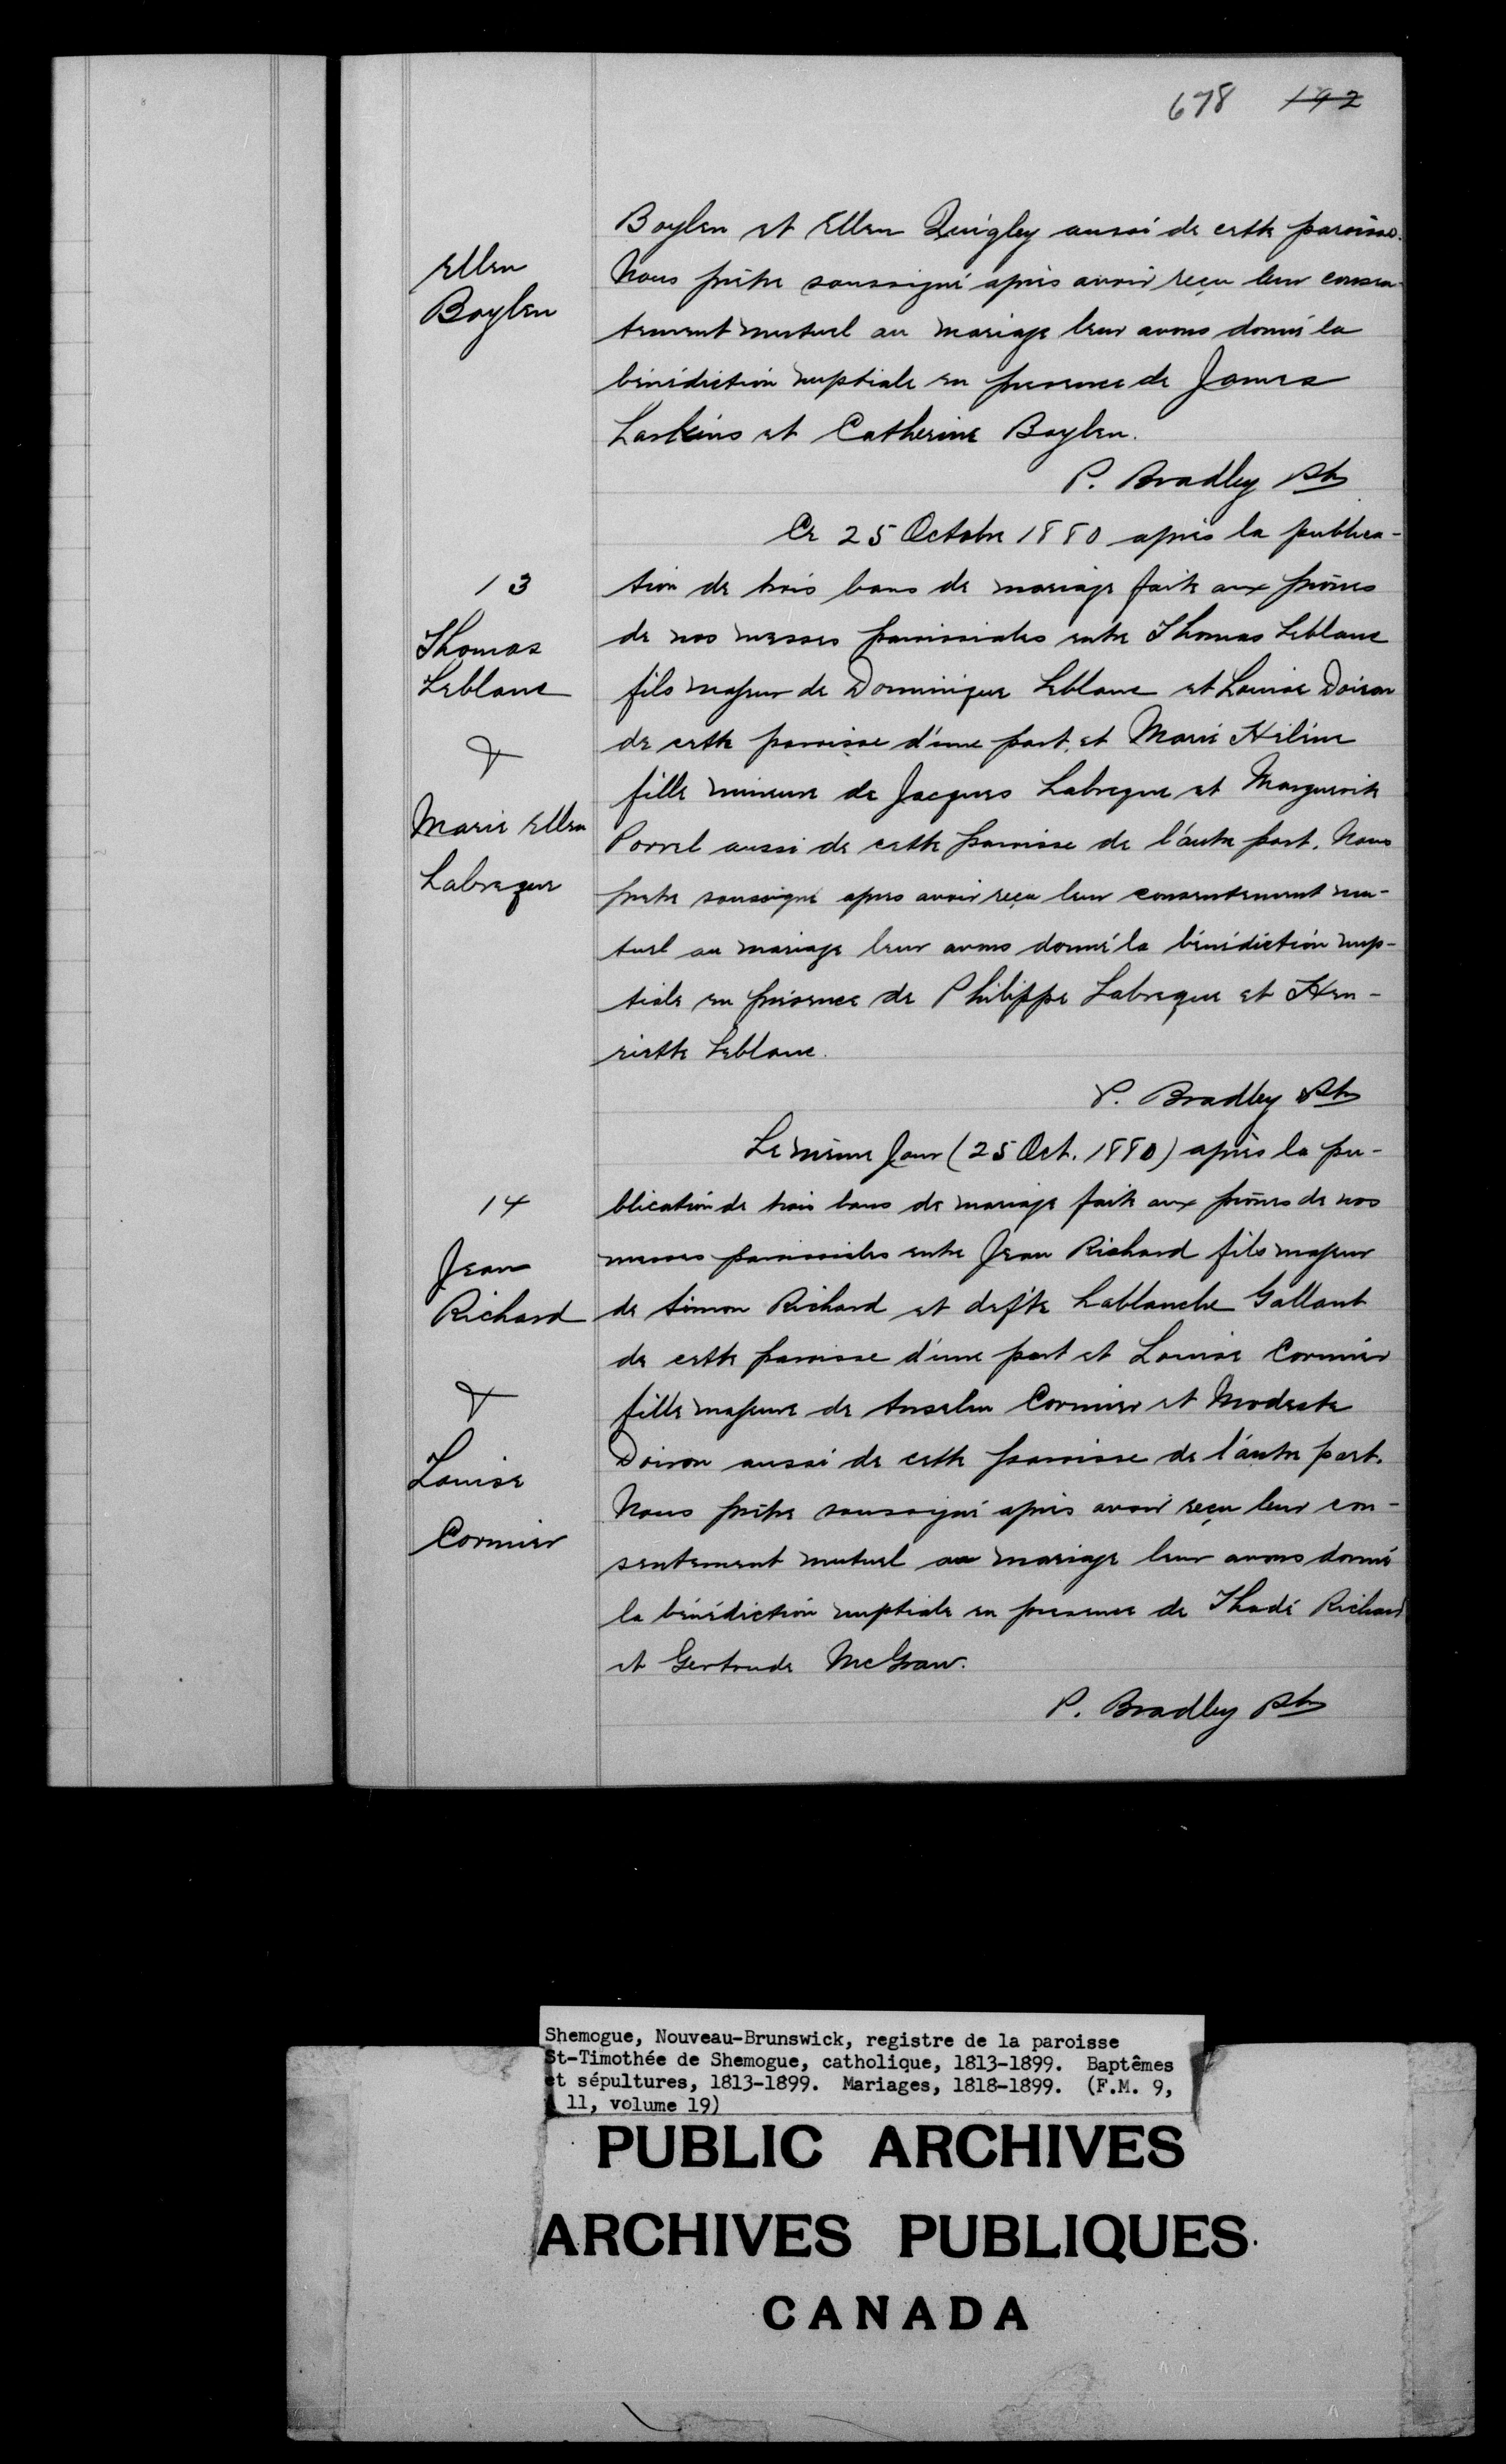 678 192
Boylen et Ellen Quigley aussi de cette paroisse.
Ellen
Boylen
Nous prêtre soussigné après avoir reçu leur consen-
tement mutuel au mariage leur avons donné la
bénédiction nuptiale en presence de James
et Catherine Boylen.
P. Bradley Ptr
Ce 25 Octobre 1880 après la publica-
13
Thomas
Leblanc
&
Marie Ellen
Labreque
tion de trois bans de mariage faite aux prônes
de nos messes paroissiales entre Thomas Leblanc
fils majeur de Dominique Leblanc et Louise Doiron
de cette paroisse d'une part, et Marie Hélène
fille mineure de Jacques Labreque et Marguerite
Porrel aussi de cette paroisse de l'autre part. Nous
pretre soussigné apres avoir reçu leur consentement mu-
tuel au mariage leur avons donné la bénédiction nup-
tiale en présence de Philippe Labreque et Hen-
riette Leblanc.
P. Bradley Ptr
Le même Jour (25 Oct. 1880) après la pu-
14
Jean
Richard
&
Louise
Cormier
blication de trois bans de mariage faite aux prônes de nos
messes paroissiales entre Jean Richard fils majeur
de Simon Richard et defte Lablanche Gallant
de cette paroisse d'une part et Louise Cormier
fille majeure de Anselm Cormier et Modeste
Doiron aussi de cette paroisse de l'autre part.
Nous prêtre soussigné après avoir reçu leur con-
sentement mutuel au mariage leur avons donné
la bénédiction nuptiale en presence de Thadé Richard
et Gertrude McGraw.
P. Bradley Ptr
Shemogue, Nouveau-Brunswick, registre de la paroisse
St-Timothée de Shemogue, catholique, 1813-1899. Baptêmes
et sépultures, 1813-1899. Mariages, 1818-1899. (F.M. 9,
11, volume 19)
PUBLIC ARCHIVES
ARCHIVES PUBLIQUES
CANADA